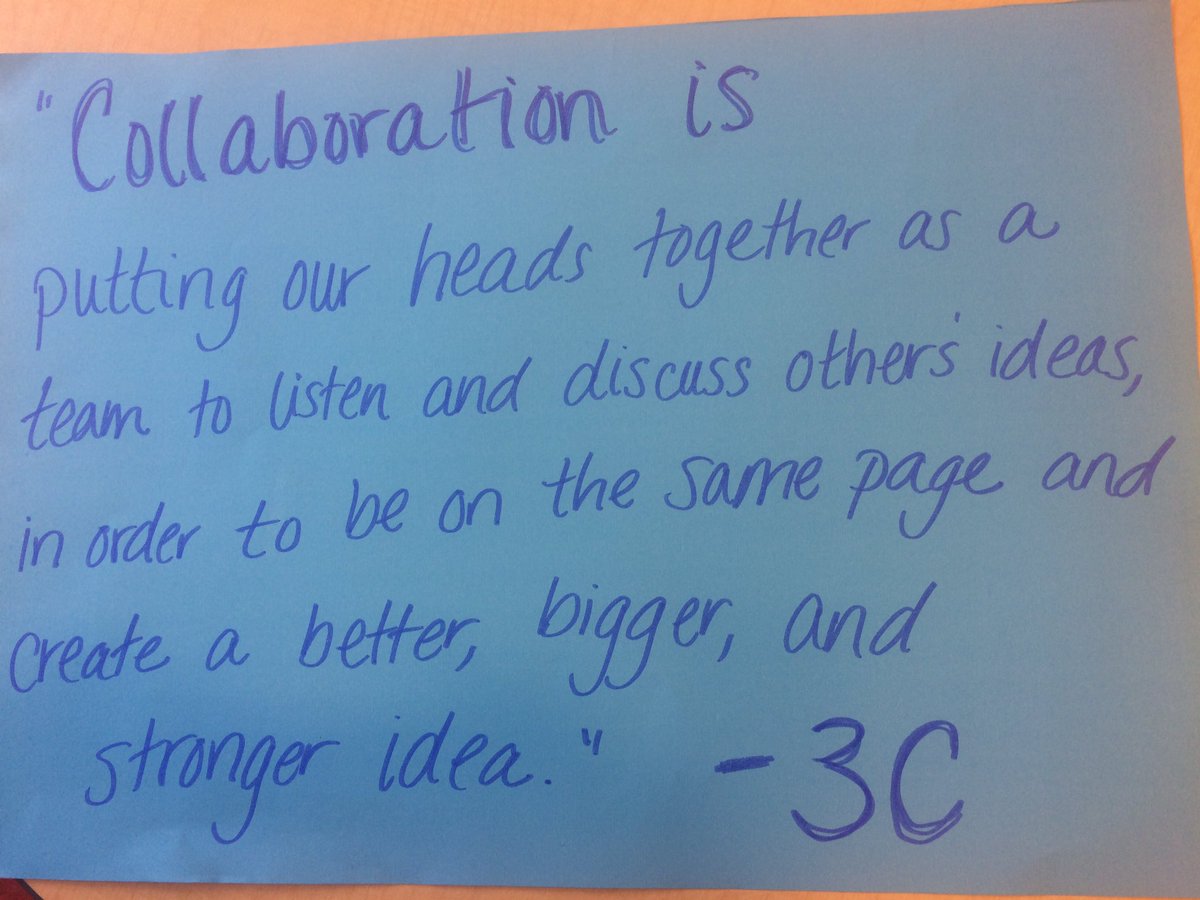 "Collaboration is
putting our heads together as a
team to listen and discuss others' ideas,
in order to be on the same page and
create a better, bigger, and
stronger idea." -3C